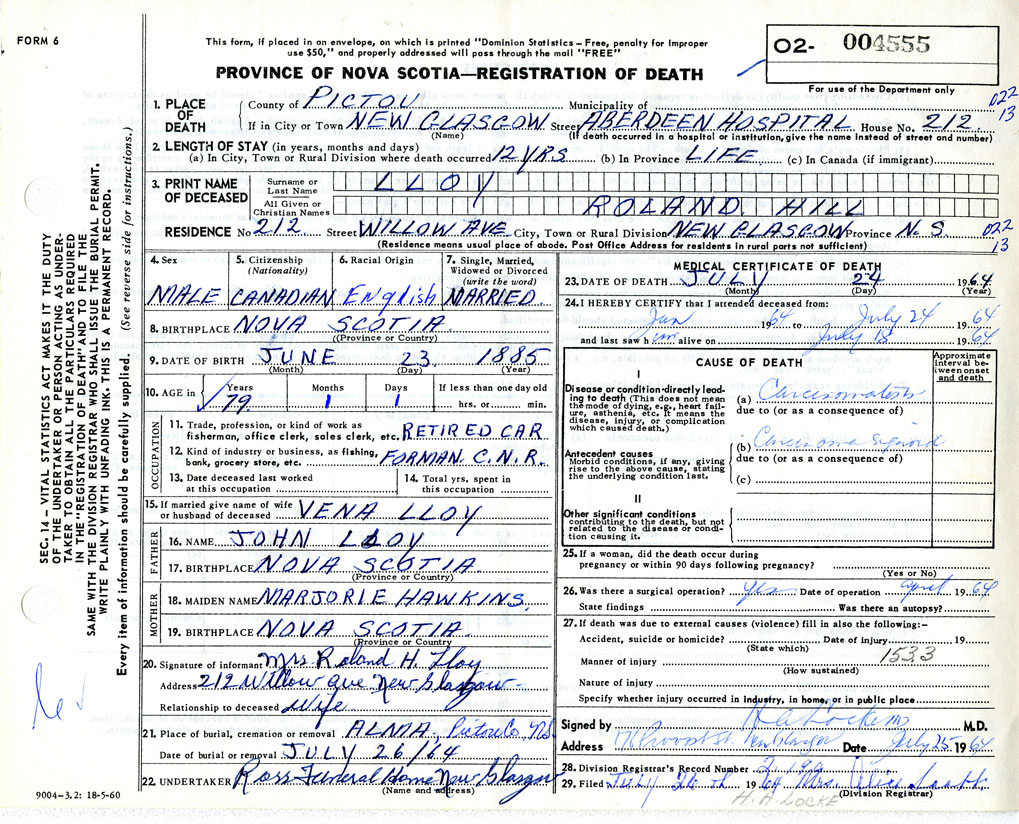 FORM 6
This form, if placed in an envelope, on which is printed "Dominion Statistics – Free, penalty for improper
use $50," and properly addressed will pass through the mail "FREE"
PROVINCE OF NOVA SCOTIA—REGISTRATION OF DEATH
02- 004555
For use of the Department only
022
13
SEC. 14 – VITAL STATISTICS ACT MAKES IT THE DUTY
OF THE UNDERTAKER OR PERSON ACTING AS UNDER-
TAKER TO OBTAIN ALL THE PARTICULARS REQUIRED
IN THE "REGISTRATION OF DEATH" AND TO FILE THE
SAME WITH THE DIVISION REGISTRAR WHO SHALL ISSUE THE BURIAL PERMIT.
WRITE PLAINLY WITH UNFADING INK. THIS IS A PERMANENT RECORD.
Every item of information should be carefully supplied. (See reverse side for instructions.)
1. PLACE OF DEATH County of PICTOU Municipality of
If in City or Town NEW GLASGOW Street ABERDEEN HOSPITAL House No. 212
(Name) (If death occurred in a hospital or institution, give the name instead of street and number)
2. LENGTH OF STAY (in years, months and days)
(a) In City, Town or Rural Division where death occurred 12 YRS (b) In Province LIFE (c) In Canada (if immigrant)
3. PRINT NAME OF DECEASED
Surname or Last Name LLOY
All Given or Christian Names ROLAND HILL
RESIDENCE No 212 Street WILLOW AVE City, Town or Rural Division NEW GLASGOW Province N.S. 022
13
(Residence means usual place of abode. Post Office Address for residents in rural parts not sufficient)
4. Sex 5. Citizenship (Nationality) 6. Racial Origin 7. Single, Married, Widowed or Divorced (write the word)
MALE CANADIAN English MARRIED
8. BIRTHPLACE NOVA SCOTIA
((Province or Country)
9. DATE OF BIRTH JUNE 23 1885
(Month) (Day) (Year)
10. AGE in Years 79 Months 1 Days 1 If less than one day old hrs. or min.
OCCUPATION
11. Trade, profession, or kind of work as fisherman, office clerk, sales clerk, etc. RETIRED CAR
12. Kind of industry or business, as fishing, bank, grocery store, etc. FORMAN C.N.R.
13. Date deceased last worked at this occupation
14. Total yrs. spent in this occupation
15. If married give name of wife or husband of deceased VENA LLOY
FATHER
16. NAME JOHN LLOY
17. BIRTHPLACE NOVA SCOTIA
(Province or Country)
MOTHER
18. MAIDEN NAME MARJORIE HAWKINS
19. BIRTHPLACE NOVA SCOTIA
(Province or Country
20. Signature of informant Mrs Roland H. Lloy
Address 212 Willow ave New Glasgow
Relationship to deceased Wife
21. Place of burial, cremation or removal ALMA, Pictou Co NS
Date of burial or removal JULY 26/64
22. UNDERTAKER Ross Funeral Home New Glasgow
(Name and address)
9004–3.2: 18-5-60
MEDICAL CERTIFICATE OF DEATH
23. DATE OF DEATH JULY 24 1964
(Month) (Day) (Year)
24. I HEREBY CERTIFY that I attended deceased from:
Jan 1964 to July 24 1964
and last saw him alive on July 18 1964
CAUSE OF DEATH
Approximate interval between onset and death
I
Disease or condition directly lead-
ing to death (This does not mean
the mode of dying, e.g., heart fail-
ure, asthenia, etc. It means the
disease, injury, or complication
which caused death.)
(a) Carcinomatosis
due to (or as a consequence of)
(b) Carcinoma Sigmoid
due to (or as a consequence of)
(c)
Antecedent causes
Morbid conditions, if any, giving
rise to the above cause, stating
the underlying condition last.
II
Other significant conditions
contributing to the death, but not
related to the disease or condi-
tion causing it.
25. If a woman, did the death occur during
pregnancy or within 90 days following pregnancy?
(Yes or No)
26. Was there a surgical operation? yes Date of operation april 1964
State findings Was there an autopsy?
27. If death was due to external causes (violence) fill in also the following:–
Accident, suicide or homicide? Date of injury 19
(State which)
1533
Manner of injury
(How sustained)
Nature of injury
Specify whether injury occurred in industry, in home, or in public place
Signed by H A Locke MD M.D.
Address New Glasgow Date July 25 1964
28. Division Registrar's Record Number
29. Filed JULY 26th 1964 Mrs. Alice
(Division Registrar)
H. A. LOCKE